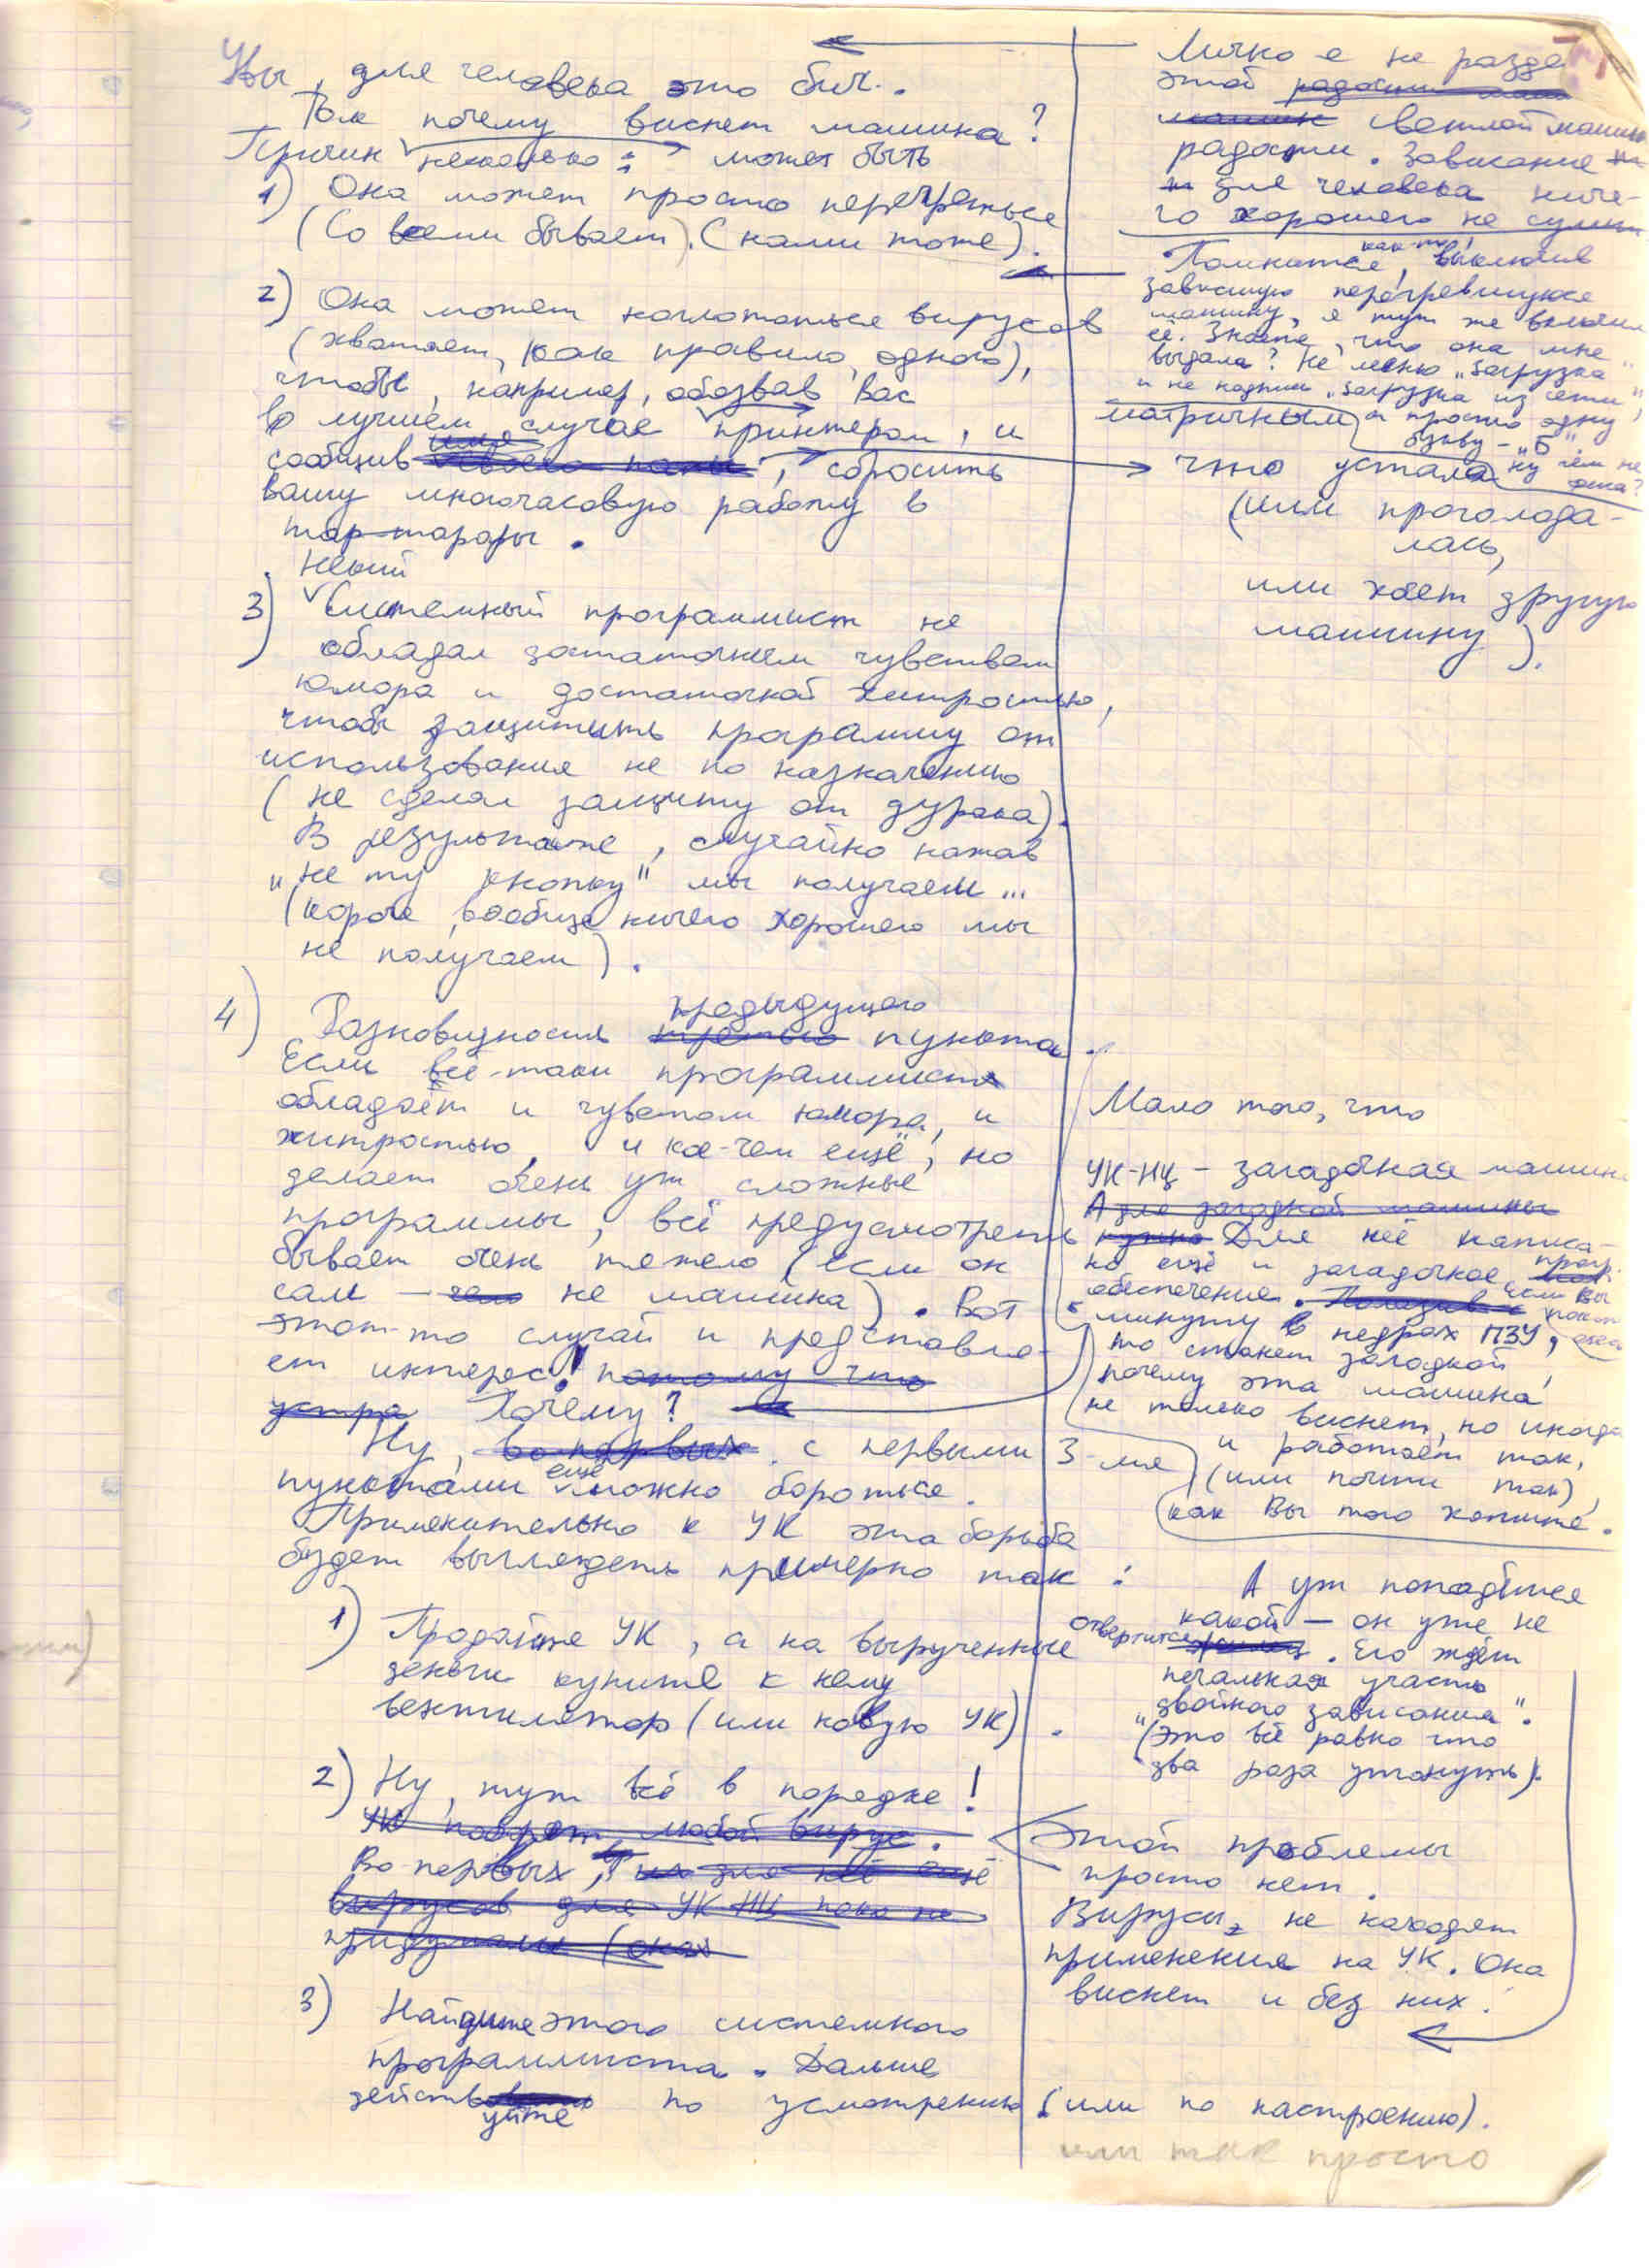 Увы, для человека это бич.
Так почему виснет машина?
Причин несколько: может быть
1) Она может просто перегреться
(Со всеми бывает). (с нами тоже).
2) Она может наглотаться вирусов
(хватает, как правило, одного),
чтобы, например, обозвав Вас
в лучшем случае принтером, и
сообщив, сбросить
вашу многочасовую работу в
тар-тарары.
Некий
3) Системный программист не
обладал достаточным чувством
юмора и достаточной хитростью,
чтобы защитить программу от
использования не по назначению
(не сделал защиту от дурака).
В результате, случайно нажав
"не ту кнопку" мы получаем...
(короче, вообще ничего хорошего мы
не получаем).
предыдущего
4) Разновидность третьего пункта.
Если всё-таки программист
обладает и чувством юмора, и
хитростью, и кое-чем ещё, но
делает очень уж сложные
программы, всё предусмотреть
бывает очень тяжело (если он
сам — не машина). Вот
этот-то случай и представля-
ет интерес! потому что
устра Почему?
Ну, во-первых с первыми 3-мя
пунктами ещё можно бороться.
Применительно к УК эта борьба
будет выглядеть примерно так:
1) Продайте УК, а на вырученные
деньги купите к нему
вентилятор (или новую УК).
2) Ну, тут всё в порядке!
УК поборет любой вирус.
Во-первых, для неё ещё
вирусов для УК-НЦ пока не
придумали (она
3) Найдите этого системного
программиста. Дальше
действуйте по усмотрению (или по настроению).
или так просто
Лично я не разде
этой радости
машин светлой машин
радости. Зависание
для человека ниче-
го хорошего не сулит
Помнится, как-то, выключив
зависшую перегревшуюся
машину, я тут же включил
её. Знаете, что она мне
выдала? Не меню "Загрузка"
и не надпись "Загрузка из сети",
а просто одну
букву - "Б"
ну чем не
матричным
что устала
(или проголода-
лась,
или хочет другую
машину).
Мало того, что
УК-НЦ - загадочная машина
А для загадочной машины
нужно Для неё написа-
но ещё и загадочное прогр.
обеспечение. Если Вы
минуту в недрах ПЗУ,
то станет загадкой,
почему эта машина
не только виснет, но иногда
и работает так,
(или почти так),
как Вы того хотите.
А уж попадётся
какой — он уже не
отвертится. Его ждёт
печальная участь
"двойного зависания".
(Это всё равно что
два раза утонуть).
Этой проблемы
просто нет.
Вирусы не находят
применения на УК. Она
виснет и без них.